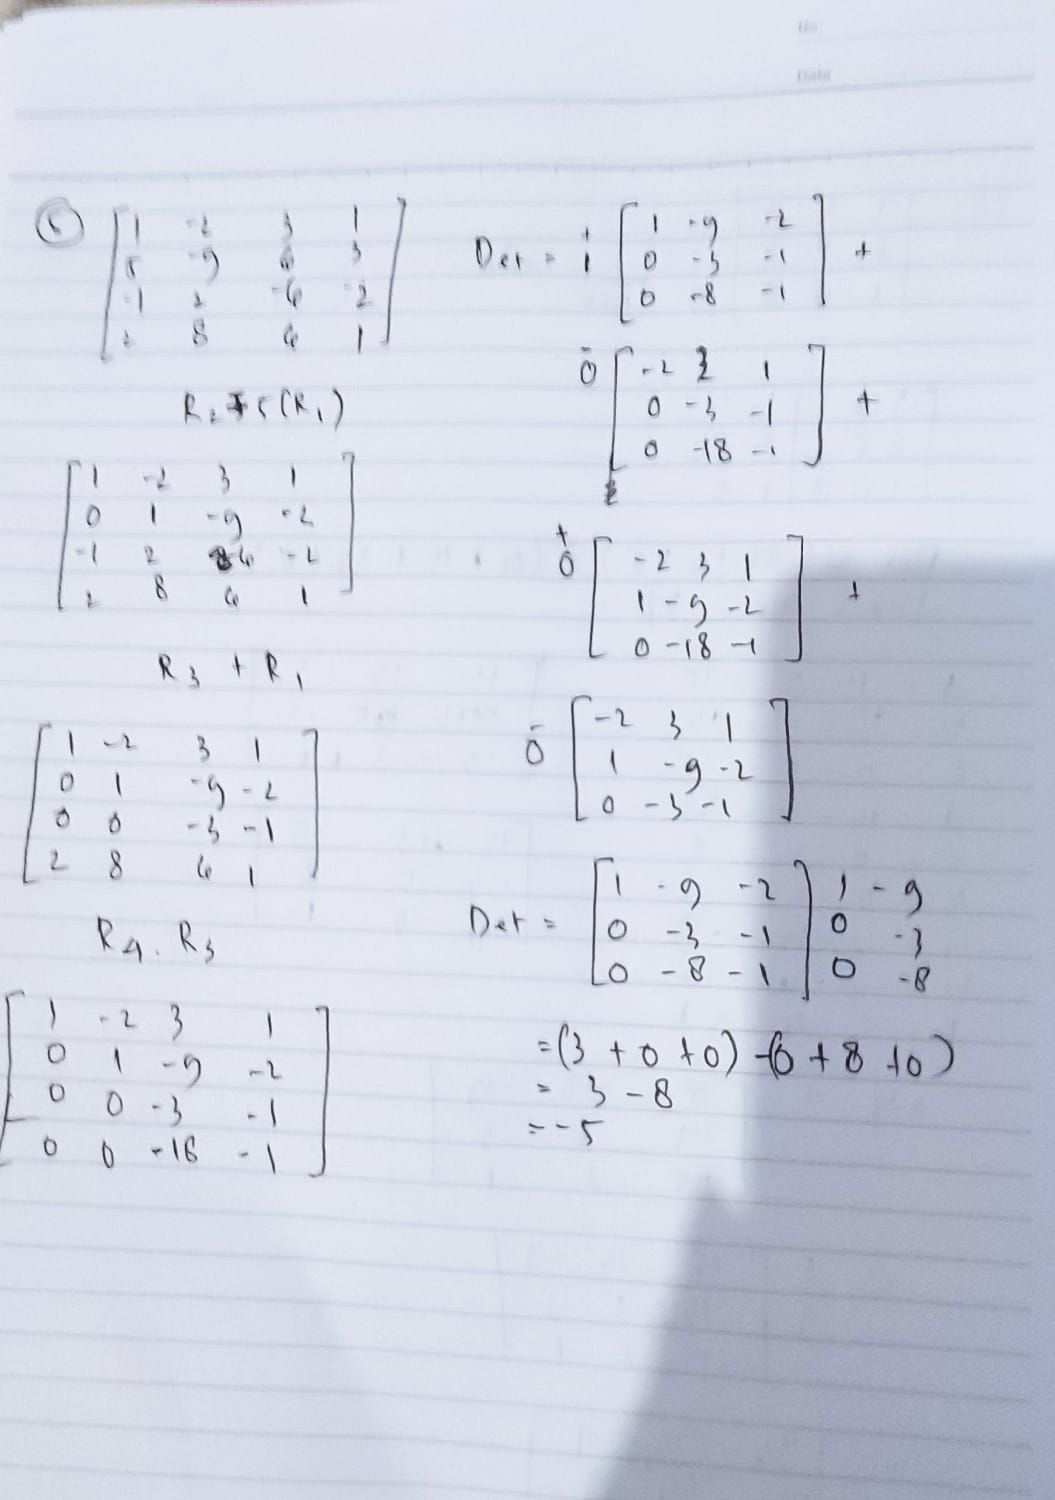 No
Date
5
1 -2 3 1
5 -9 6 3
-1 2 -6 -2
2 8 6 1
R2 - 5(R1)
1 -2 3 1
0 1 -9 -2
-1 2 -6 -2
2 8 6 1
R3 + R1
1 -2 3 1
0 1 -9 -2
0 0 -3 -1
2 8 6 1
R4 . R3
1 -2 3 1
0 1 -9 -2
0 0 -3 -1
0 0 -18 -1
Det = + 1 [ 1 -9 -2 ] +
0 -3 -1
0 -8 -1
- 0 [ -2 3 1 ] +
0 -3 -1
0 -18 -1
+ 0 [ -2 3 1 ] +
1 -9 -2
0 -18 -1
- 0 [ -2 3 1 ]
1 -9 -2
0 -3 -1
Det = [ 1 -9 -2 ] 1 -9
0 -3 -1 0 -3
0 -8 -1 0 -8
= (3 + 0 + 0) - (0 + 8 + 0)
= 3 - 8
= -5